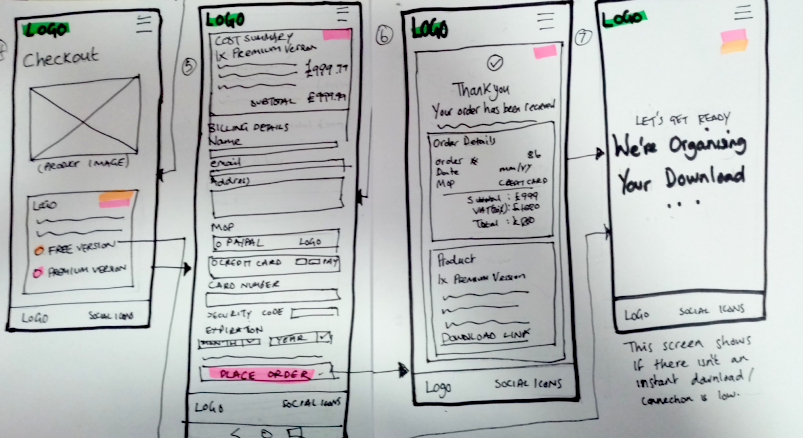 LOGO
Checkout
(PRODUCT IMAGE)
LOGO
FREE VERSION
PREMIUM VERSION
LOGO
SOCIAL ICONS
5
LOGO
COST SUMMARY
1x PREMIUM VERSION
SUBTOTAL
BILLING DETAILS
Name
email
Address
MOP
PAYPAL LOGO
CREDIT CARD
CARD NUMBER
SECURITY CODE
EXPIRATION
MONTH YEAR
PLACE ORDER
LOGO
SOCIAL ICONS
6
LOGO
Thankyou
Your order has been received
Order Details
Order # 86
Date mm/yy
MOP CREDIT CARD
Subtotal : £999
Total :
Product
1x PREMIUM VERSION
DOWNLOAD LINK
Logo
SOCIAL ICONS
7
LOGO
LET'S GET READY
We're Organising
Your Download
...
LOGO
SOCIAL ICONS
This screen shows
if there isn't an
instant download/
connection is low.